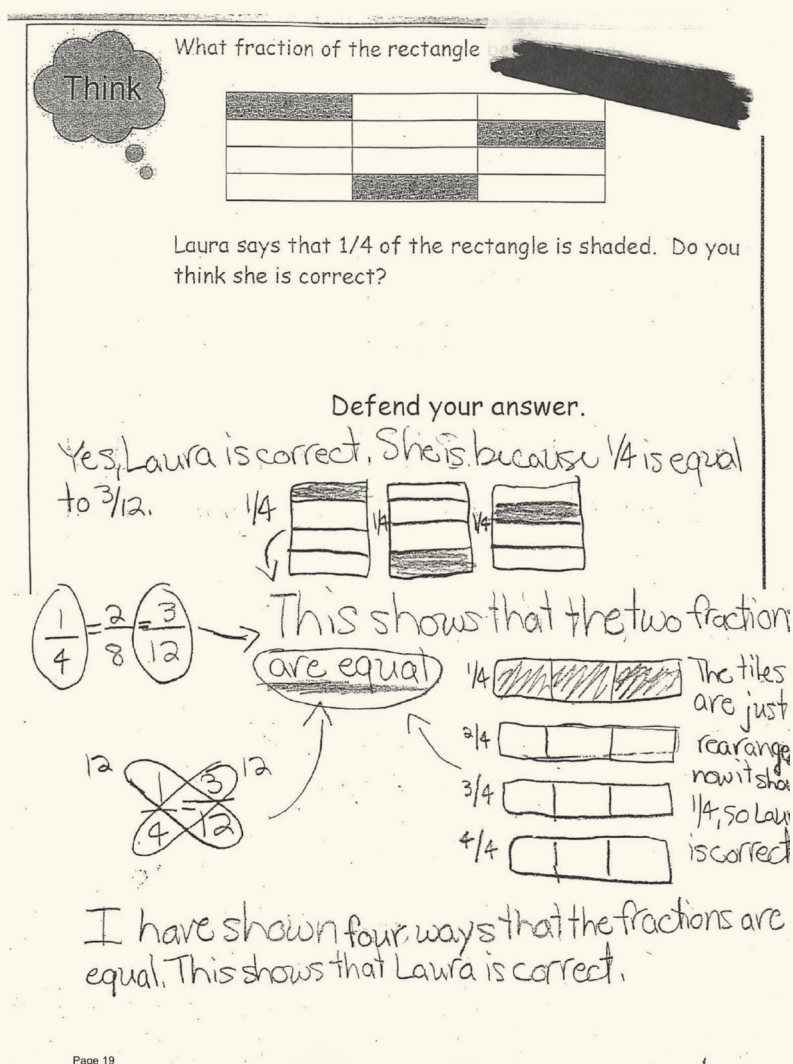 What fraction of the rectangle
Think
Laura says that 1/4 of the rectangle is shaded. Do you
think she is correct?
Defend your answer.
Yes, Laura is correct. She is because 1/4 is equal
to 3/12.
1/4 1/4 1/4
1/4 = 2/8 = 3/12
This shows that the two fraction
are equal
1/4
2/4
3/4
4/4
The tiles
are just
rearange
now it sho
1/4, so Lau
is correct
12 1/4 = 3/12 12
I have shown four ways that the fractions are
equal. This shows that Laura is correct.
Page 19